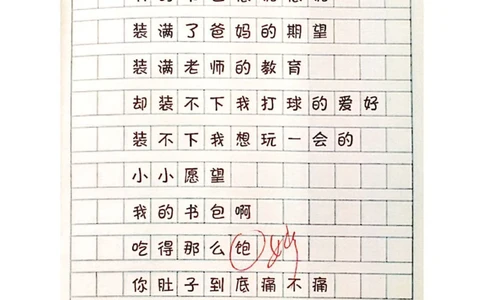 装满了爸妈的期望
装满老师的教育
却装不下我打球的爱好
装不下我想玩一会的
小小愿望
我的书包啊
吃得那么饱
你肚子到底痛不痛